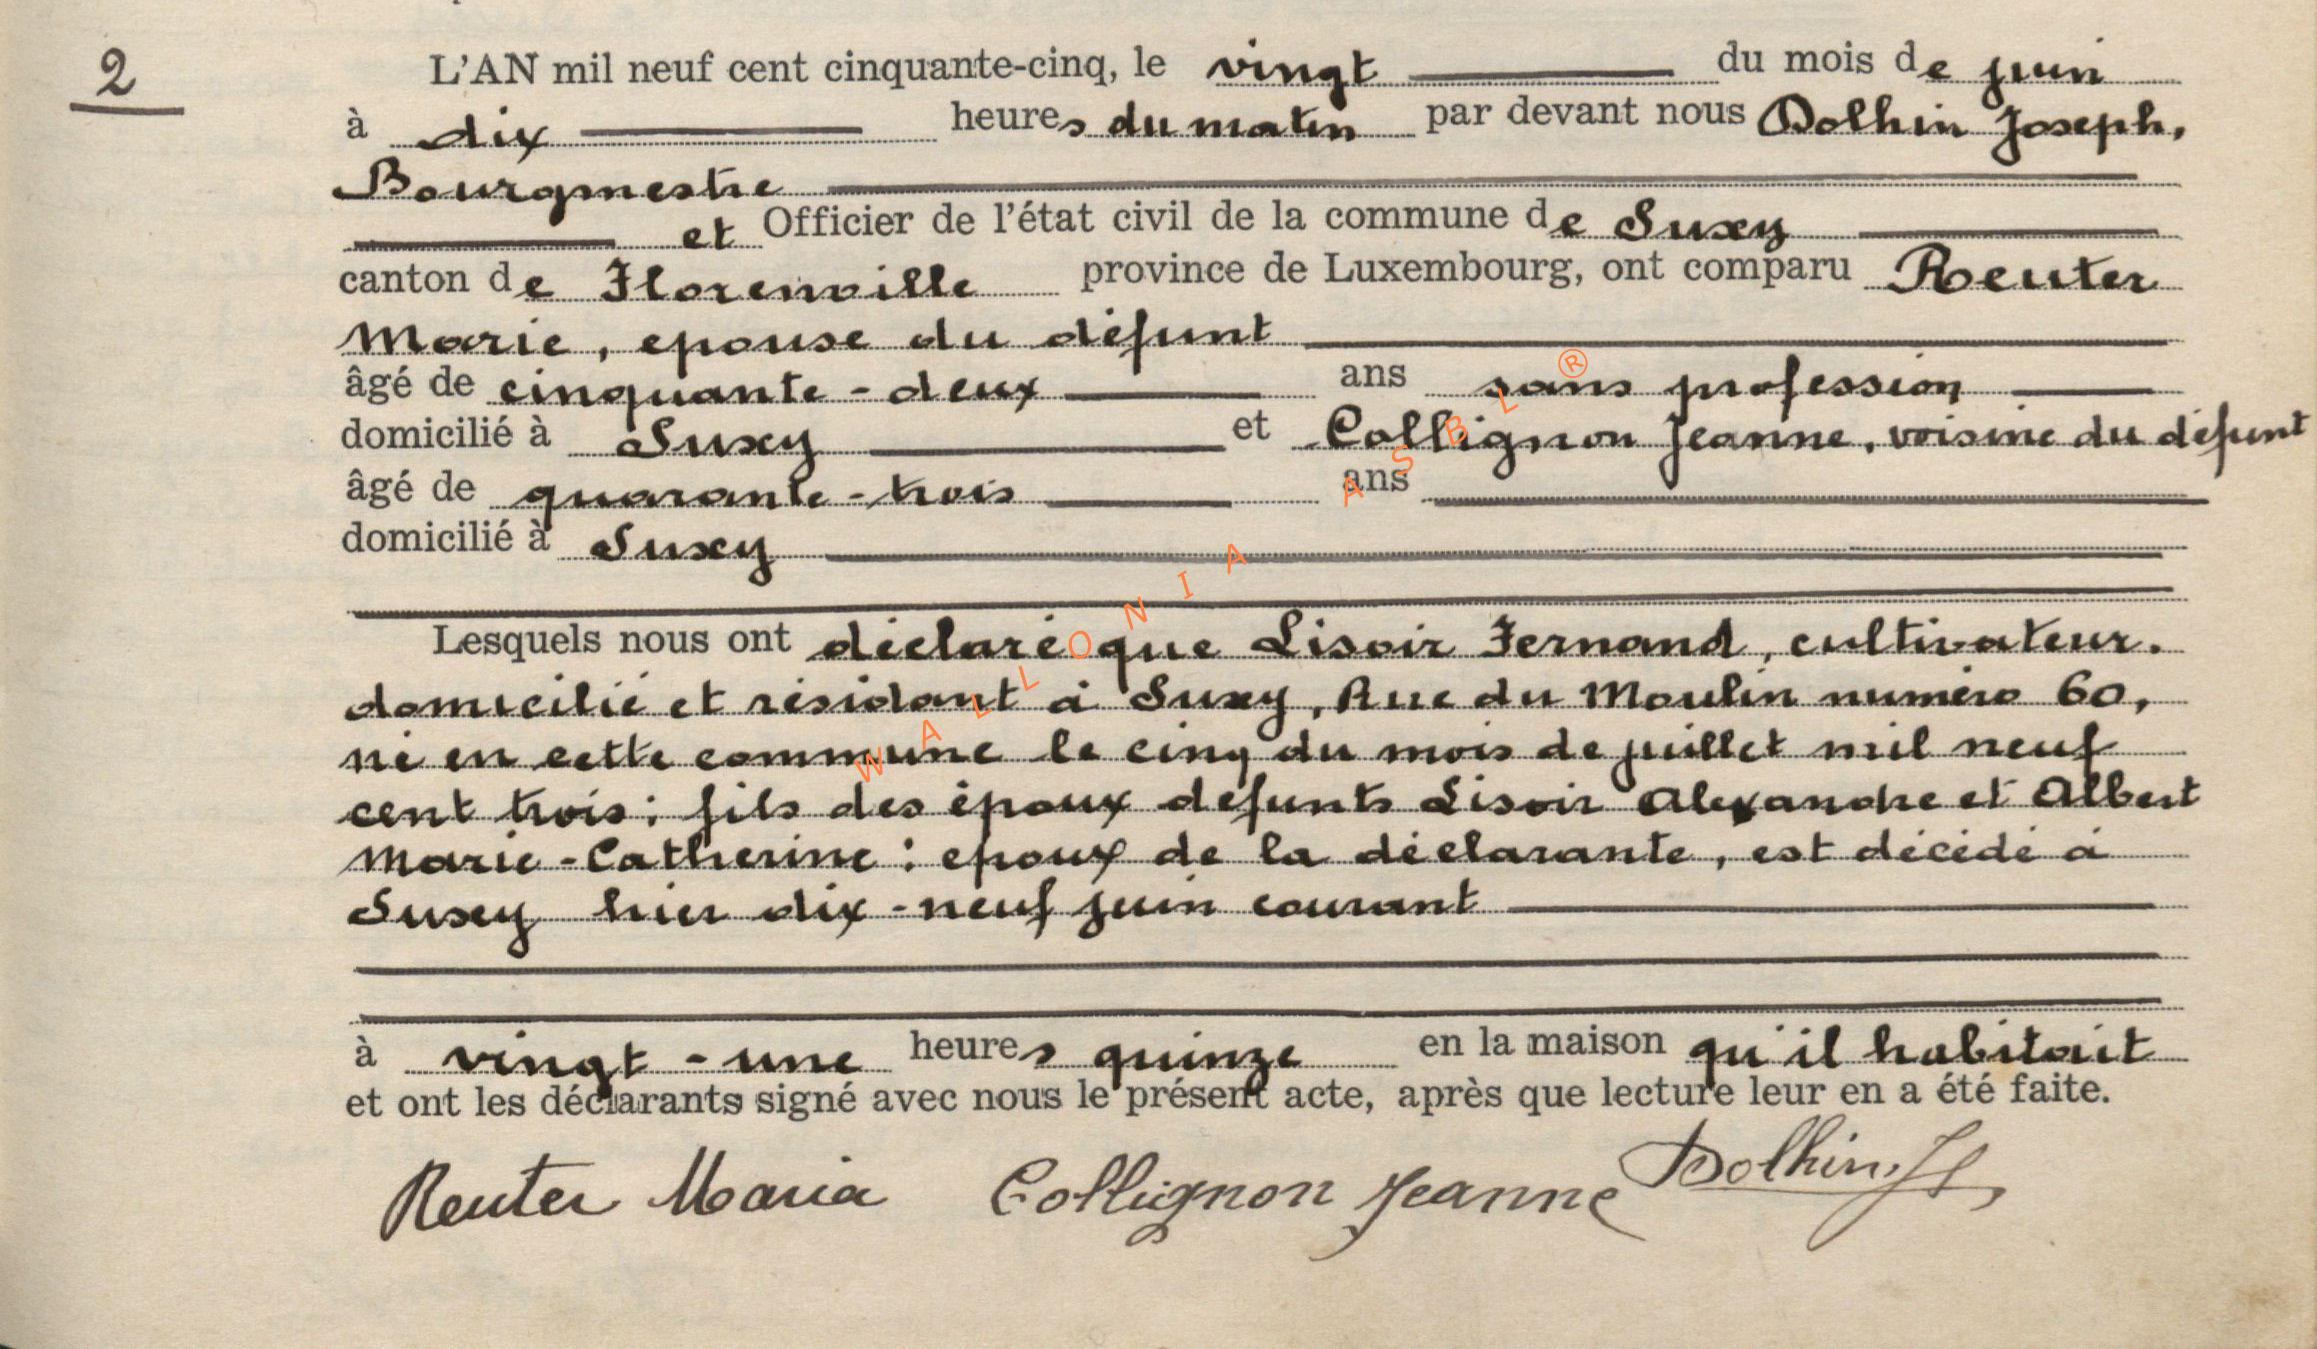 2
L'AN mil neuf cent cinquante-cinq, le vingt du mois de juin
à dix heures du matin par devant nous Dolhin Joseph,
Bourgmestre
et Officier de l'état civil de la commune de Suxy
canton de Florenville province de Luxembourg, ont comparu Reuter
Marie, epouse du défunt
âgé de cinquante-deux ans sans profession
domicilié à Suxy et Collignon Jeanne, voisine du défunt
âgé de quarante-trois ans
domicilié à Suxy
Lesquels nous ont déclaré que Lisoir Fernand, cultivateur.
domicilié et résidant à Suxy, Rue du Moulin numéro 60,
né en cette commune le cinq du mois de juillet mil neuf
cent trois; fils des époux défunts Lisoir Alexandre et Albert
Marie-Catherine; epoux de la déclarante, est décédé à
Suxy hier dix-neuf juin courant
à vingt-une heures quinze en la maison qu'il habitait
et ont les déclarants signé avec nous le présent acte, après que lecture leur en a été faite.
Reuter Maria Collignon Jeanne Dolhin. J
WALLONIA ASBL ®